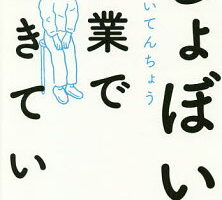 ょぼい
いてんちょう
業で
きてい